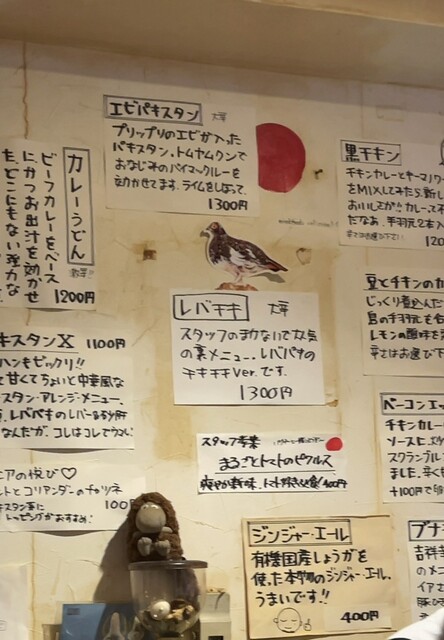 エビパキスタン
プリップリのエビが入った
パキスタン。トムヤムクンで
おなじみのバイマックルーを
効かせてます。ライムをしぼって。
1300円
カレーうどん
数量!!
ビーフカレーをベース
にかつお出汁を効かせ
た、どこにもない強力な
1200円
黒チキン
チキンカレーとキーマ
をMIXしてみたら新し
おいしさが!!カレーって
だなぁ。手羽元2本入
辛さはお選び下さい
レバチキ
スタッフのまかないで大人気
の裏メニュー。レバパキの
チキチキver.です。
1300円
豆とチキンのカ
じっくり煮込んだ
鳥の手羽元を
レモンの酸味を
辛さはお選び下
キスタンX 1100円
ハンもビックリ!!
と甘くてちょいと中華風な
スタン・アレンジ・メニュー。
レバパキのレバーなる少肝
なんだが、コレはコレでウマい。
スタッフ考案
まるごとトマトのピクルス
爽やか新味、トマト好き必食!400円
ニアの悦び♡
トとコリアンダーのチャツネ
100円
トッピングがおすすめ!
ベーコンエッ
チキンカレー
ソースと、
スクランブル
ました。辛く
+100円で
ジンジャーエール
有機国産しょうがを
使った本物のジンジャーエール。
うまいです!!
400円
ブナ
吉祥
のメニ
イアむ
豚ひ